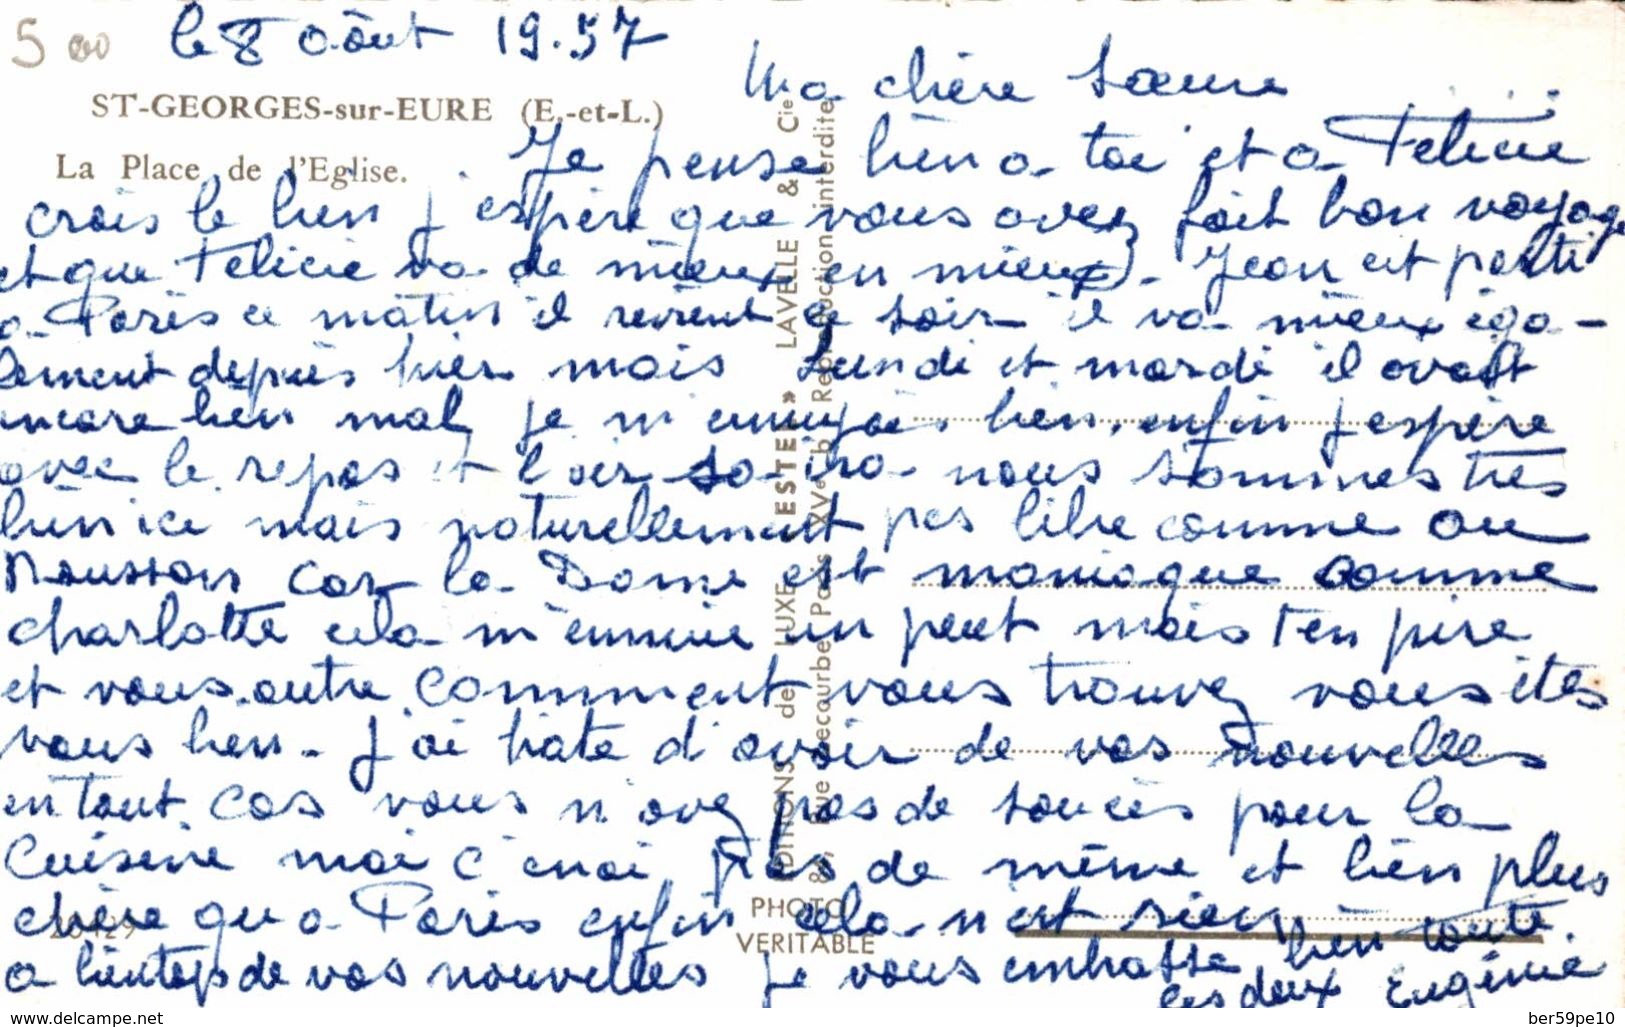 500
le 8 août 19.57
Ma chère Sœure
ST-GEORGES-sur-EURE (E.-et-L.)
La Place de l'Eglise.
Je pense bien a toi et a Félicie
crois le bien j espère que vous avez fait bon voyage
et que Félicie va de mieux en mieux. Jean est parti
a Paris ce matin il revient ce soir il va mieux éga-
lement depuis hier mais Lundi et mardi il avait
encore bien mal je m ennuyai bien. enfin j espère
avec le repos et l air sa ira nous sommes très
bien ici mais naturellement pas libre comme au
Mousson car la Dame est maniaque comme
charlotte cela m'ennuie un peut mais t en pire
et vous autre comment vous trouvez vous êtes
vous bien. J'ai hate d'avoir de vos nouvelles
en tout cas vous n avez pas de soucis pour la
Cuisine moi c' pas de même et bien plus
chère qu a Paris enfin cela n est rien
a bientop de vos nouvelles je vous embrasse bien toute
les deux Eugénie
EDITIONS de LUXE « ESTEL » LAVELLE & Cie
rue Lecourbe Paris XVe Reproduction interdite
PHOTO
VERITABLE
www.delcampe.net
ber59pe10